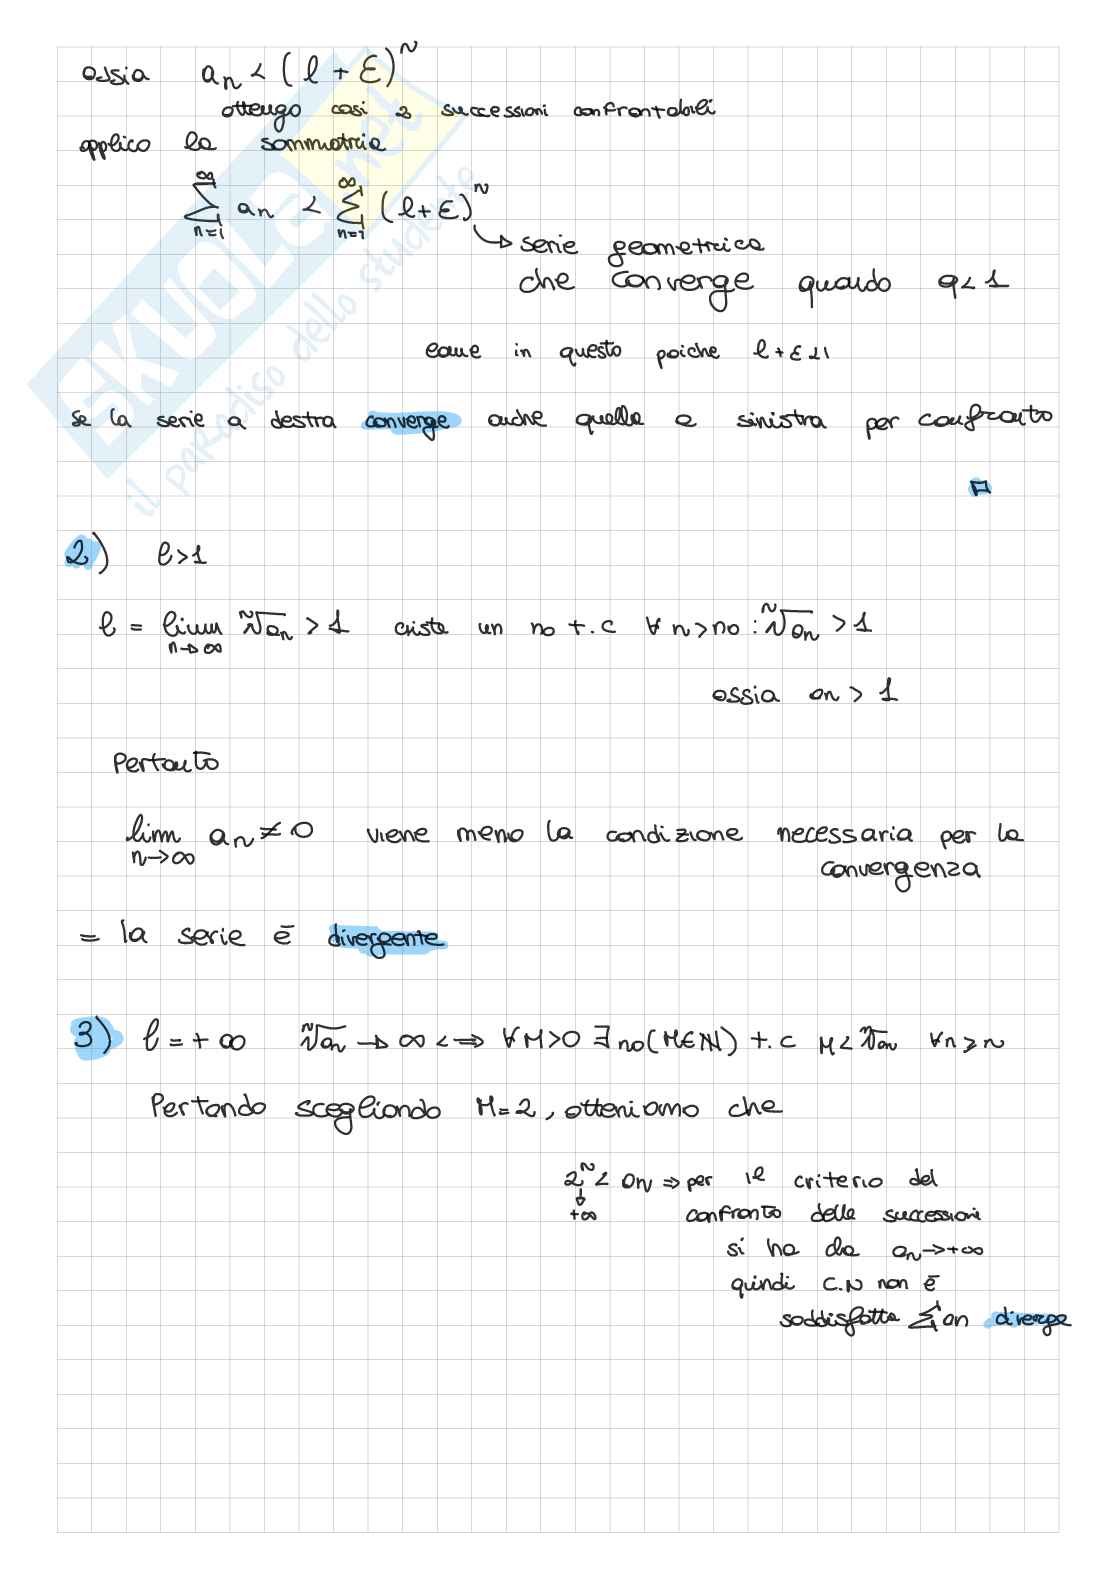 ossia aₙ < (l + ε)ⁿ
ottengo così 2 successioni confrontabili
applico la sommatria
∞ ∞
∑ aₙ < ∑ (l+ε)ⁿ
n=1 n=1
↳ serie geometrica
che converge quando q<1
come in questo poiche l+ε<1
se la serie a destra converge anche quella a sinistra per confronto
□
2) l>1
l = lim ⁿ√aₙ > 1 esiste un n₀ t.c ∀ n>n₀ : ⁿ√aₙ > 1
n→∞
ossia an > 1
Pertanto
lim aₙ ≠ 0 viene meno la condizione necessaria per la
n→∞
convergenza
= la serie è divergente
3) l = +∞ ⁿ√aₙ → ∞ <=> ∀ M>0 ∃ n₀(M∈ℕ) t.c M< ⁿ√aₙ ∀n≥n
Pertando scegliendo M=2, otteniamo che
2ⁿ < an ⇒ per il criterio del
↓
+∞ confronto delle successioni
si ha da aₙ→+∞
quindi C.N non è
soddisfatta ∑ an diverge
SKUOLA.net
il paradiso dello studente